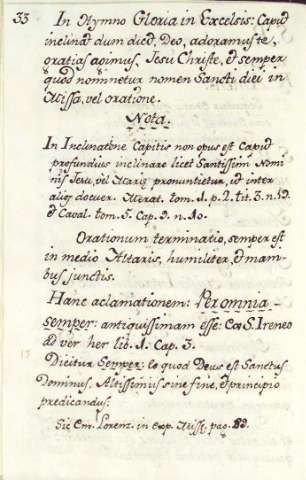 33 In Hymno Gloria in Excelsis: Caput
inclinat dum dicit, Deo, adoramus te,
gratias agimus, Jesu Christe, et semper
quod nominetur nomen Sancti diei in
Missa, vel oratione.
Nota.
In Inclinatione Capitis non opus est Caput
profundius inclinare licet Santissim Nomi
nis Jesu, vel Mariæ pronuntietur, ut inter
alios docuer. Merat. tom. 1. p. 2. tit. 3. n.
et Caval. tom. 5. Cap. 9. n. 10.
Orationum terminatio, semper est
in medio Altaris, humiliter, et mani
bus junctis.
Hanc aclamationem: Per omnia
semper: antiquissimam esse: S. Ireneo
ad ver her lib. 1. Cap. 3.
Dicitur Semper: eo quod Deus est Sanctus
Dominus, Altissimus sine fine, et principio
predicandus.
Sic Em. Lorenz. in exp. Misse. pag.